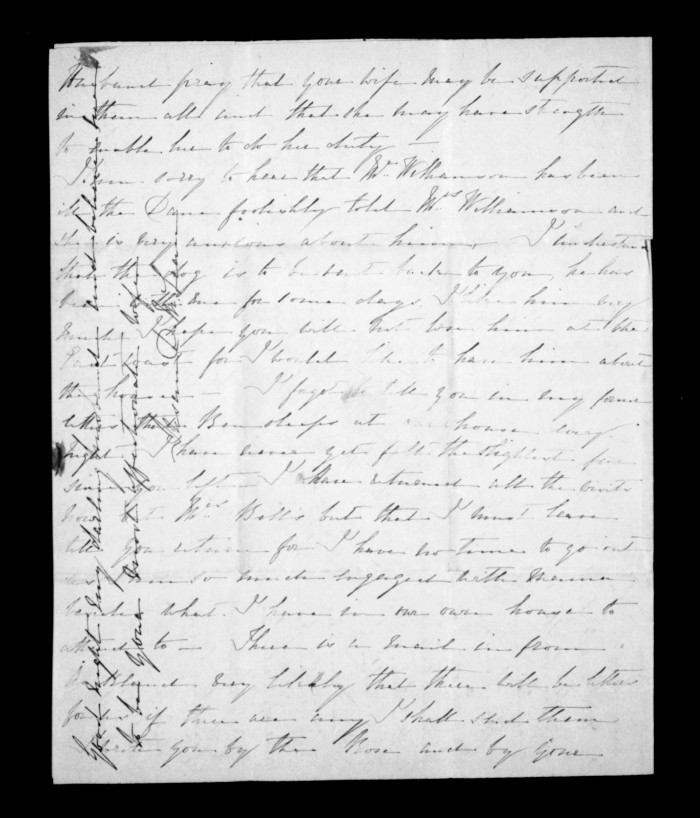 Husband pray that your wife may be supported
in them all and that she may have strength
to enable her to do her duty –
I am sorry to hear that Mr. Williamson has been
ill the Dane foolishly told Mrs Williamson and
she is very anxious about him. I understand
that the dog is to be sent back to you, he has
been with me for some days I like him very
much I hope you will not lose him at the
East Coast for I would like to have him about
the house – I forgot to tell you in my former
letters that Ben sleeps at our house every
night I have never yet felt the slightest fear
since you left I have returned all the visits
now but Mrs Bell's but that I must leave
till you return for I have no time to go out
I am so much engaged with Mamma
besides what I have in our own house to
attend to – There is a mail in from
Auckland very likely that there will be letters
for us if there are any I shall send them
with you by the Rose and by your
Good night my darling husband and believe me
to be your most affectionate wife